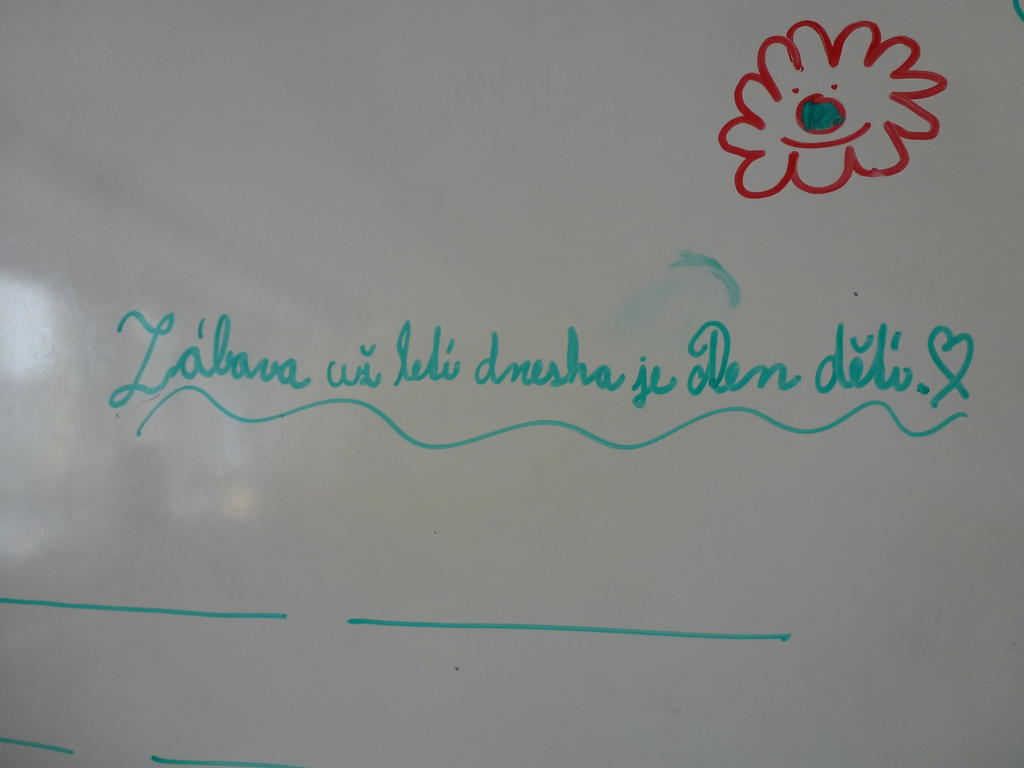 Zábava už letí dneska je Den dětí.